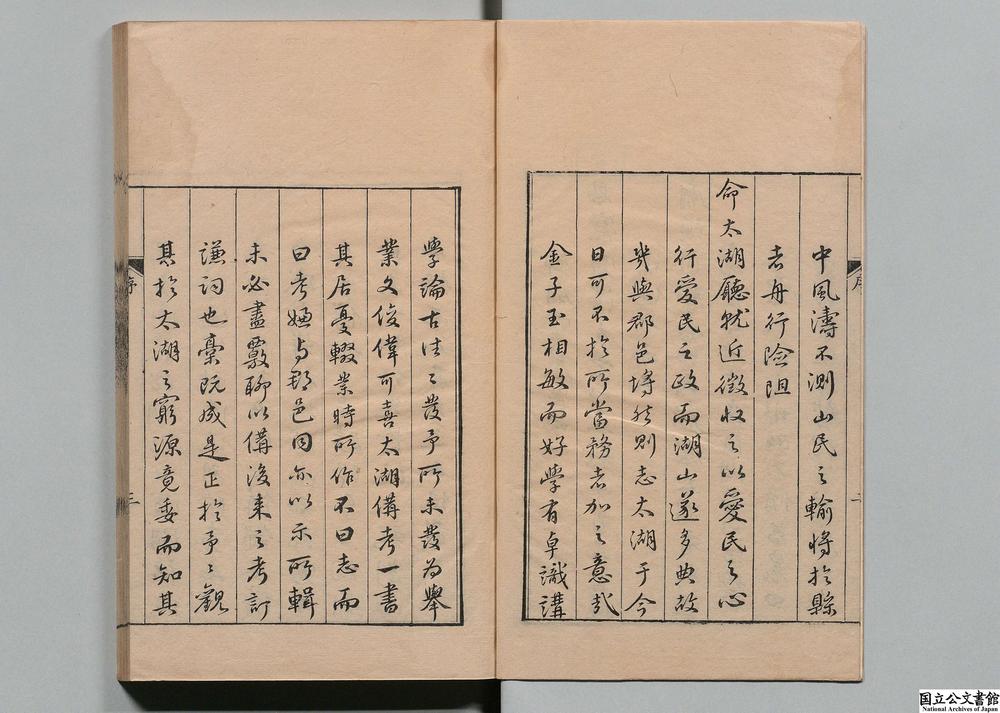 中風濤不測山民之輸將於縣
者舟行險阻
命太湖廳就近徵收之以愛民之心
行愛民之政而湖山遂多典故
幾與郡邑埒然則志太湖于今
日可不於所當務者加之意哉
金子玉相敏而好學有卓識講
學論古往〻發予所未發爲舉
業文俊偉可喜太湖備考一書
其居憂輟業時所作不曰志而
曰考嫌与郡邑同亦以示所輯
未必盡覈聊以備後来之考訂
謙詞也藁既成是正於予〻觀
其於太湖之窮源竟委而知其
序
三
国立公文書館
National Archives of Japan